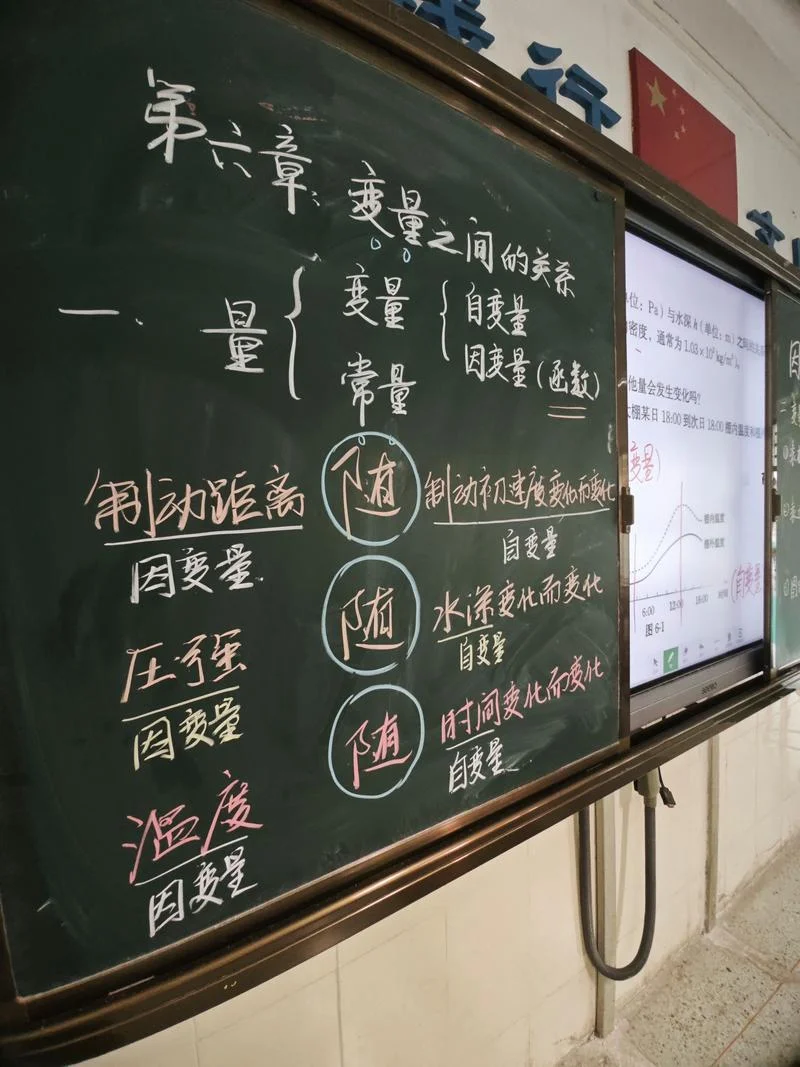 行
第六章、变量之间的关系
一、量
变量
自变量
因变量(函数)
常量
制动距离 随 制动初速度变化而变化
因变量
自变量
压强 随 水深变化而变化
因变量
自变量
温度 随 时间变化而变化
因变量
自变量
位：Pa）与水深h（单位：m）之间的关系
密度，通常为1.03×10³kg/m³）。
他量会发生变化吗？
大棚某日18:00到次日18:00棚内温度和棚外
变量)
棚内温度
棚外温度
6:00 12:00 18:00 时间
(自变量
图6-1
seewo
因